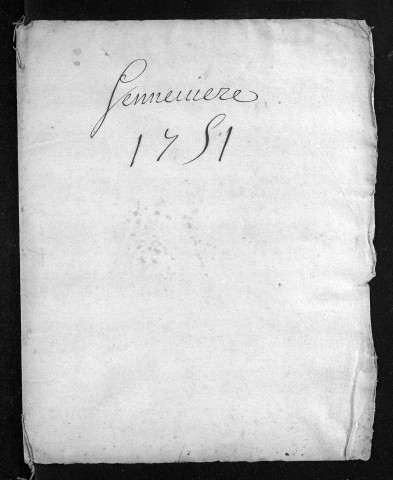 Gennevière
1751